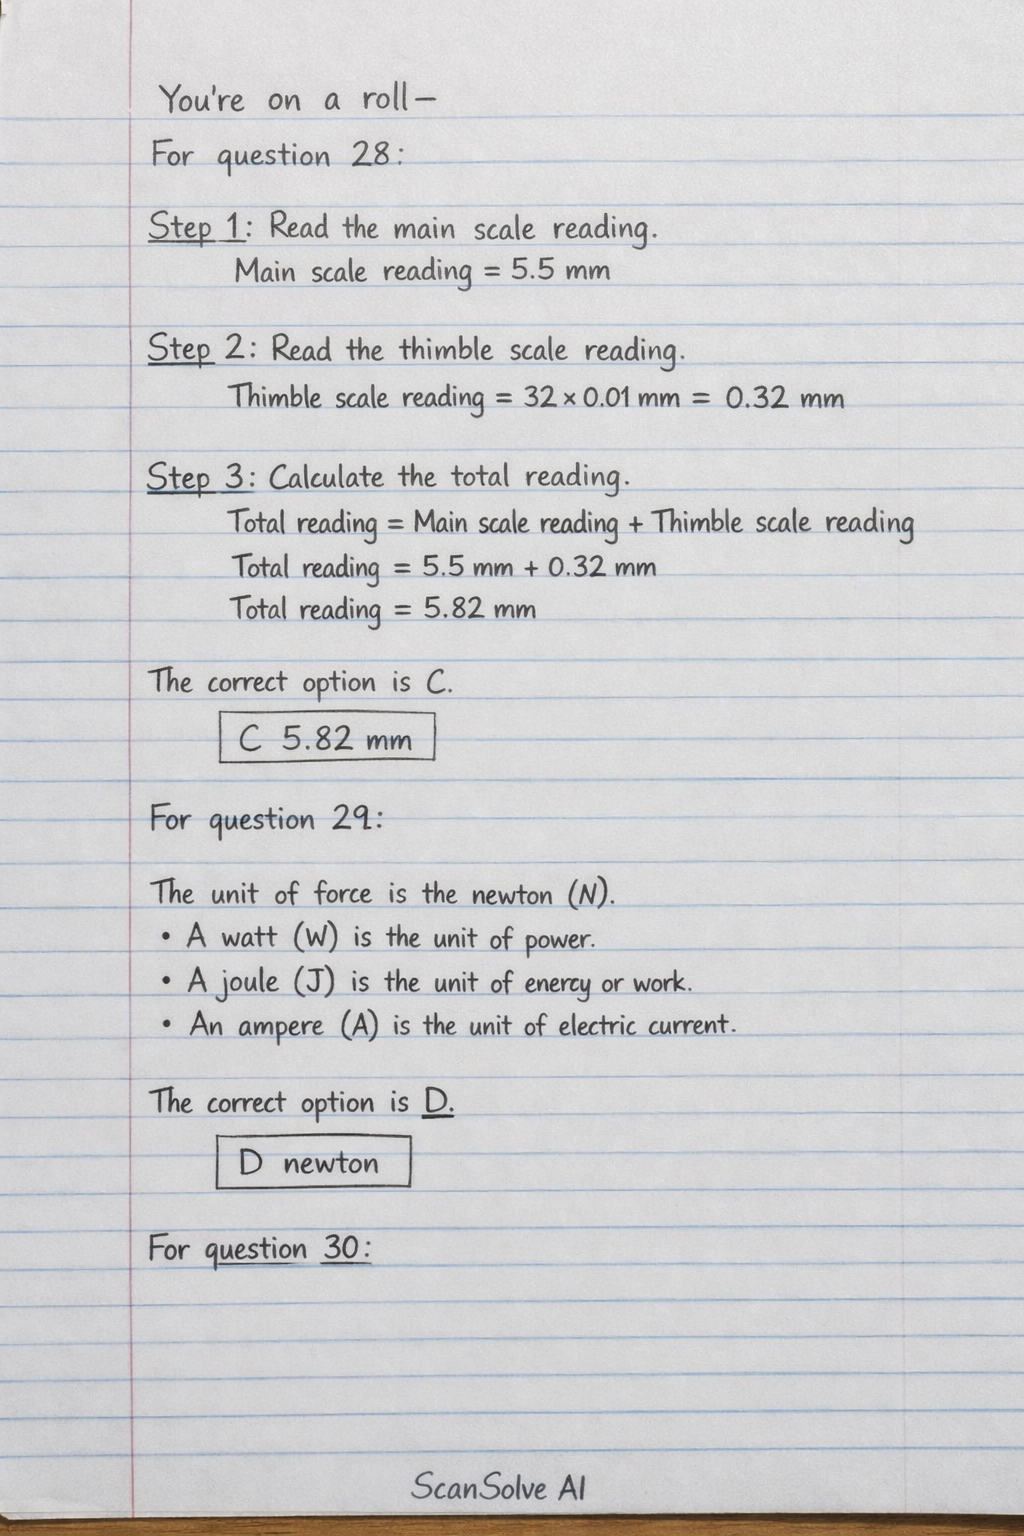 You're on a roll—
For question 28:
Step 1: Read the main scale reading.
Main scale reading = 5.5 mm
Step 2: Read the thimble scale reading.
Thimble scale reading = 32 × 0.01 mm = 0.32 mm
Step 3: Calculate the total reading.
Total reading = Main scale reading + Thimble scale reading
Total reading = 5.5 mm + 0.32 mm
Total reading = 5.82 mm
The correct option is C.
C 5.82 mm
For question 29:
The unit of force is the newton (N).
• A watt (W) is the unit of power.
• A joule (J) is the unit of energy or work.
• An ampere (A) is the unit of electric current.
The correct option is D.
D newton
For question 30:
ScanSolve AI